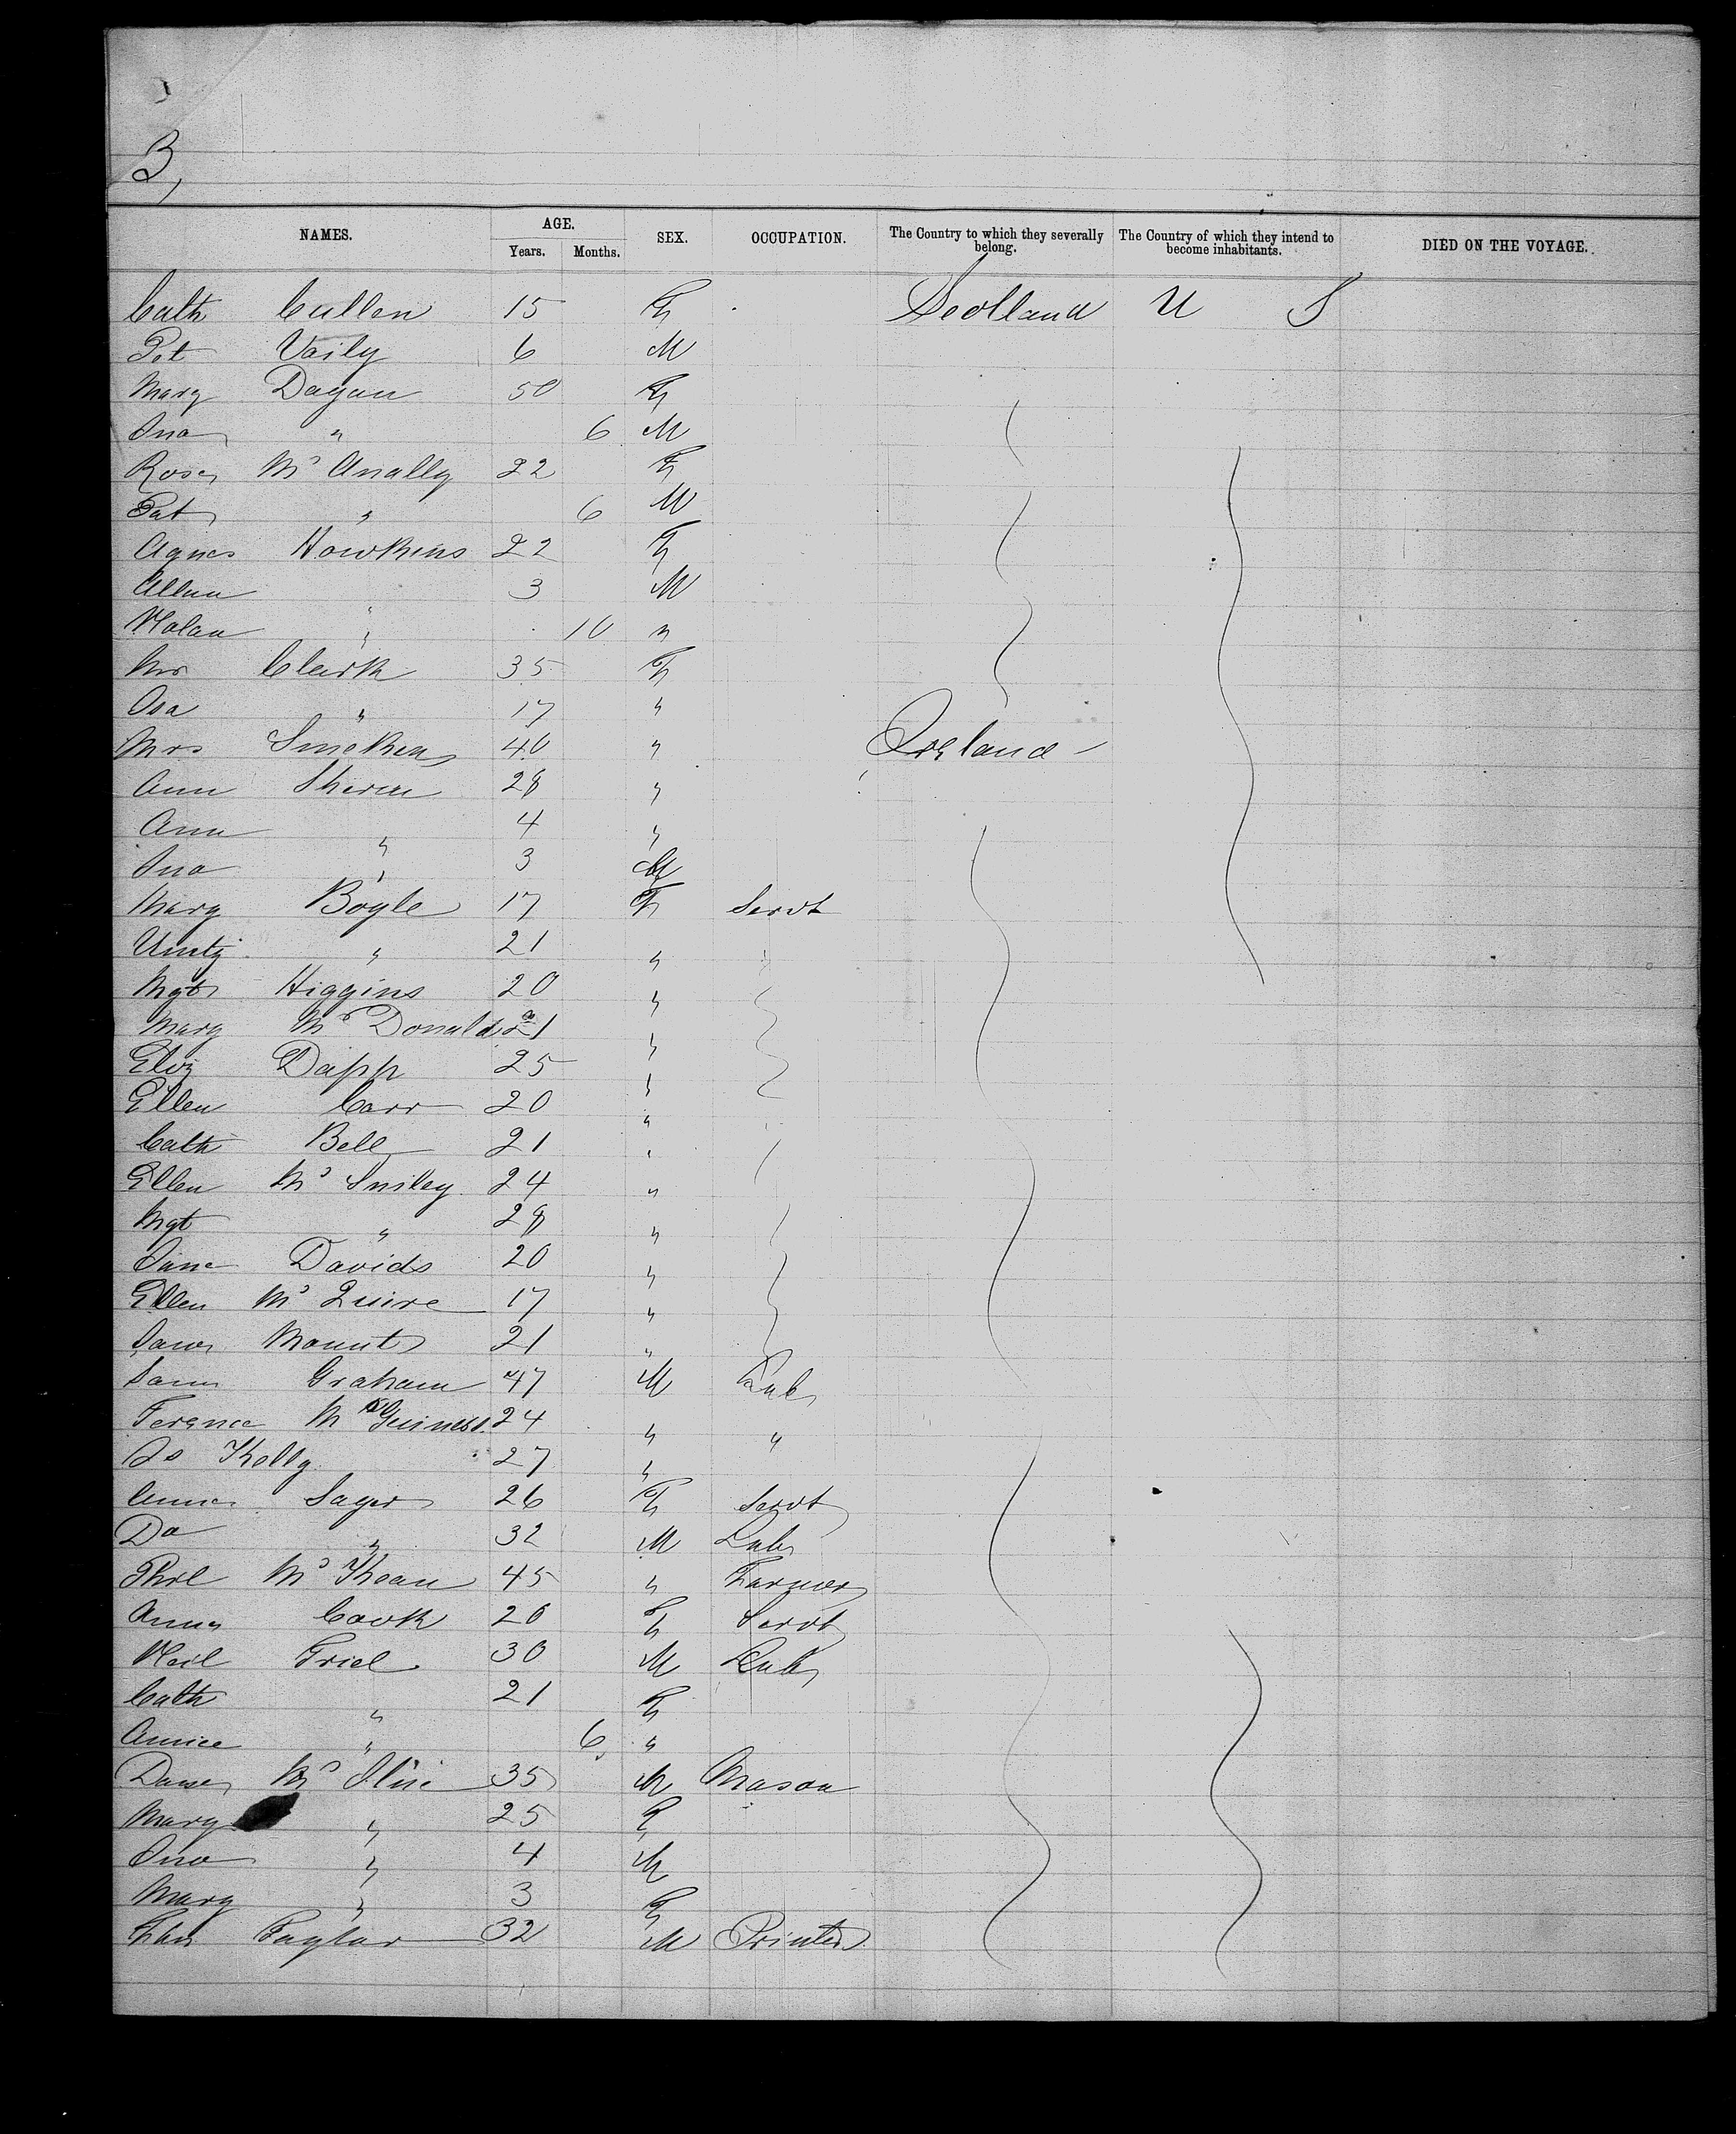 3,
NAMES. AGE. SEX. OCCUPATION. The Country to which they severally belong. The Country of which they intend to become inhabitants. DIED ON THE VOYAGE.
Years. Months.
Cath Cullen 15 F Scotland U S
Pat Vaily 6 M
Mary Dagan 50 F
Jno " 6 M
Rose Mc Anally 22 F
Pat " 6 M
Agnes Hawkins 22 F
Allan " 3 M
" 10 "
Mrs Clark 35 F
Isa " 17 "
Mrs 40 " Ireland
Ann 28 "
Ann " 4 "
Jno " 3 M
Mary Boyle 17 F Servt
Unity " 21 "
Mgt Higgins 20 "
Mary Mc Donald 21 "
Eliz Dapp 25 "
Ellen Carr 20 "
Cath Bell 21 "
Ellen Mc Smiley 24 "
Mgt " 28 "
Jane Davids 20 "
Ellen Mc Quire 17 "
Mount 21 "
Saml Graham 47 M Lab
Terence Mc Guiness 24 " "
Js Kelly 27 "
Anne Sager 26 F Servt
Da " 32 M Lab
Phil Mc Kean 45 " Farmer
Anna Cook 20 F Servt
Neil Friel 30 M Lab
Cath " 21 F
Annie " 6 "
Mc 35 M Mason
Mary " 25 F
Jno " 4 M
Mary " 3 F
Taylor 32 M Printer